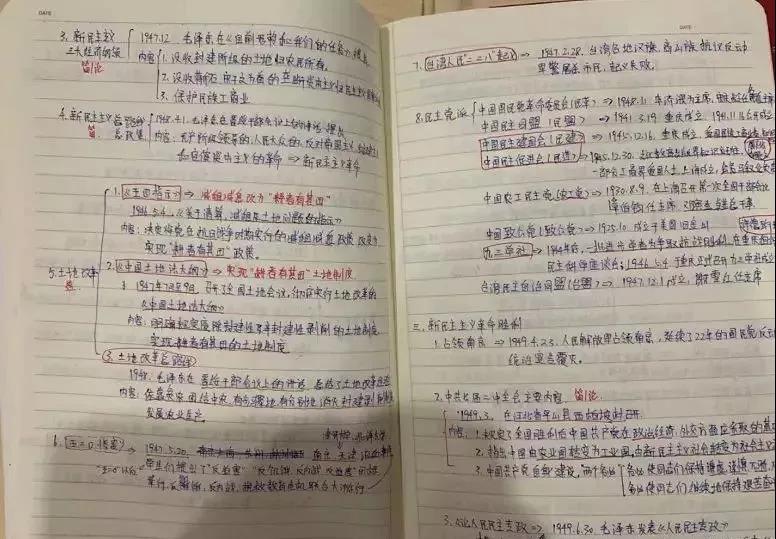 DATE
3. 新民主主义 ⇒ 1947.12 毛泽东在《目前形势和我们的任务》提出
三大经济纲领
简/论
内容 1. 没收封建阶级的土地归农民所有.
2. 没收蒋
3. 保护民族工商业
4. 新民主主义总路线 ⇒ 1948.4.1. 毛泽东在晋绥干部会议上的讲话, 提出
简. 总政策
内容: 无产阶级领导的, 人民大众的, 反对帝国主义
和官僚资本主义的革命 ⇒ 新民主主义革命
1.《五四指示》⇒ 减租减息改为"耕者有其田"
1946.5.4.《关于清算、减租及土地问题的指示》
内容: 决定将党在抗日战争时期实行的减租减息政策改变为
实现"耕者有其田"政策.
5. 土地改革
2.《中国土地法大纲》⇒ 实现"耕者有其田"土地制度
1947年7月至9月, 召开全国土地会议,
《中国土地法大纲》
内容: 明确规定废除封建性及半封建性剥削的土地制度
实现耕者有其田的土地制度
3. 土地改革总路线
1948. 毛泽东在晋绥干部会议上的讲话, 总结了土地改革
内容: 依靠贫农, 团结中农, 有步骤地, 有分别地消灭封建剥削制度
发展农业生产
6. 五二〇惨案 ⇒ 1947.5.20.
学生们提出了"反饥饿""反内战
DATE
7. 台湾人民"二二八"起义 ⇒ 1947.2.28. 台湾各地汉族、高山族抗议反动
军警屠杀市民, 起义失败.
8. 民主党派
中国国民党革命委员会(民革) ⇒ 1948.1.1 李济深为主席,
中国民主同盟(民盟) ⇒ 1941.3.19. 重庆成立,
中国民主建国会(民建) ⇒ 1945.12.16. 重庆成立,
中国民主促进会(民进) ⇒ 1945.12.30.
中国农工民主党(农工党) ⇒ 1930.8.9. 在上海召开第一次全国干部会议
中国致公党(致公党) ⇒ 1925.10. 成立于美国旧金山
九三学社 ⇒ 1944年底, 一批进步学者为争取抗战胜利, 在重庆组织
民主科学座谈会; 1946.5.4. 于重庆正式召开九三学社成立
台湾民主自治同盟(台盟) ⇒ 1947.12.1 成立, 谢雪红任主席
三. 新民主主义革命胜利
1. 占领南京 ⇒ 1949.4.23. 人民解放军占领南京, 延续了22年的国民党反动
统治宣告覆灭.
2. 中共七届二中全会主要内容. 简/论
1949.3. 在河北省平山县西柏坡村召开.
内容: 1. 规定了全国胜利后中国共产党在政治经济、外交方面应采取的基本
2. 指出中国由农业国转变为工业国, 由新民主主义社会转变为社会主义
3. 中国共产党自身建设, 两个务必
务必使同志们保持谦虚、谨慎
务必使同志们继续地保持艰苦奋斗
3.《论人民民主专政》⇒ 1949.6.30. 毛泽东发表《论人民民主专政》